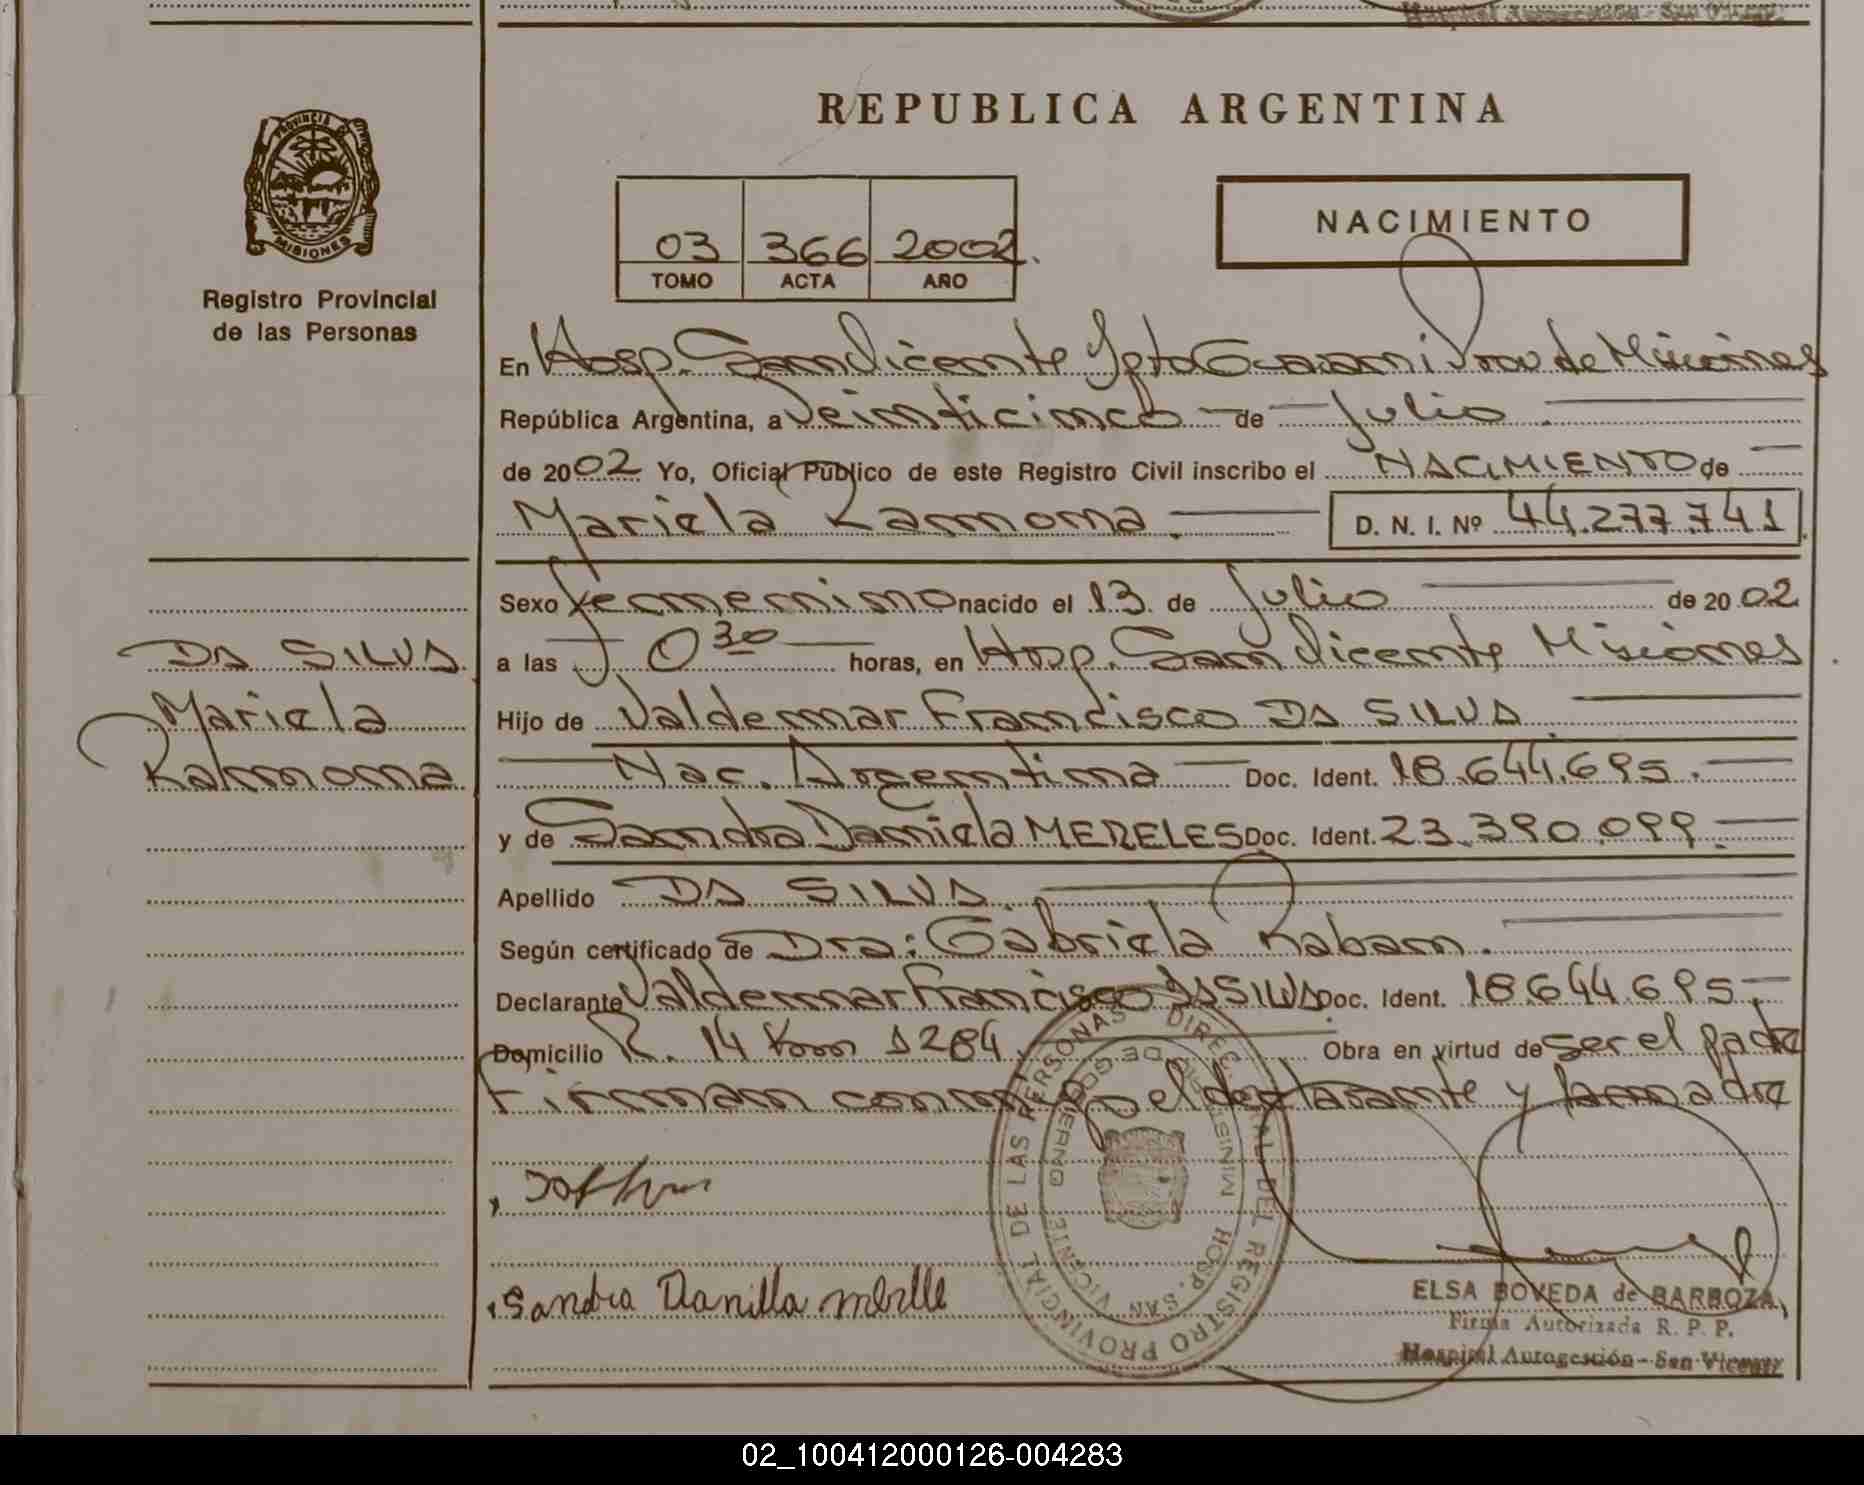 Hospital Autogestión - San Vicente
PROVINCIA DE
MISIONES
Registro Provincial
de las Personas
REPUBLICA ARGENTINA
03 366 2002.
TOMO ACTA AÑO
NACIMIENTO
En Hosp. San Vicente Dpto Guarani Prov de Misiones
República Argentina, a Veinticinco de Julio
de 2002 Yo, Oficial Público de este Registro Civil inscribo el NACIMIENTO de
Mariela Ramona. D. N. I. Nº 44.277.741
Sexo femenino nacido el 13 de Julio de 2002
a las 0 30 horas, en Hosp. San Vicente Misiones
Hijo de Valdemar Francisco DA SILVA
Nac. Argentina Doc. Ident. 18.644.695.
y de Sandra Daniela MERELES Doc. Ident. 23.390.099
Apellido DA SILVA.
Según certificado de Dra: Gabriela Raban.
Declarante Valdemar Francisco DA SILVA Doc. Ident. 18.644.695.
Domicilio R. 14 Km 1284 Obra en virtud de ser el padre
Firman conmigo el declarante y la madre
DA SILVA
Mariela
Ramona
Sandra Danilla
DIREC. GRAL. DEL REGISTRO PROVINCIAL DE LAS PERSONAS
MINISTERIO DE GOBIERNO
HOSP. SAN VICENTE
ELSA BOVEDA de BARBOZA
Firma Autorizada R. P. P.
Hospital Autogestión - San Vicente
02_100412000126-004283